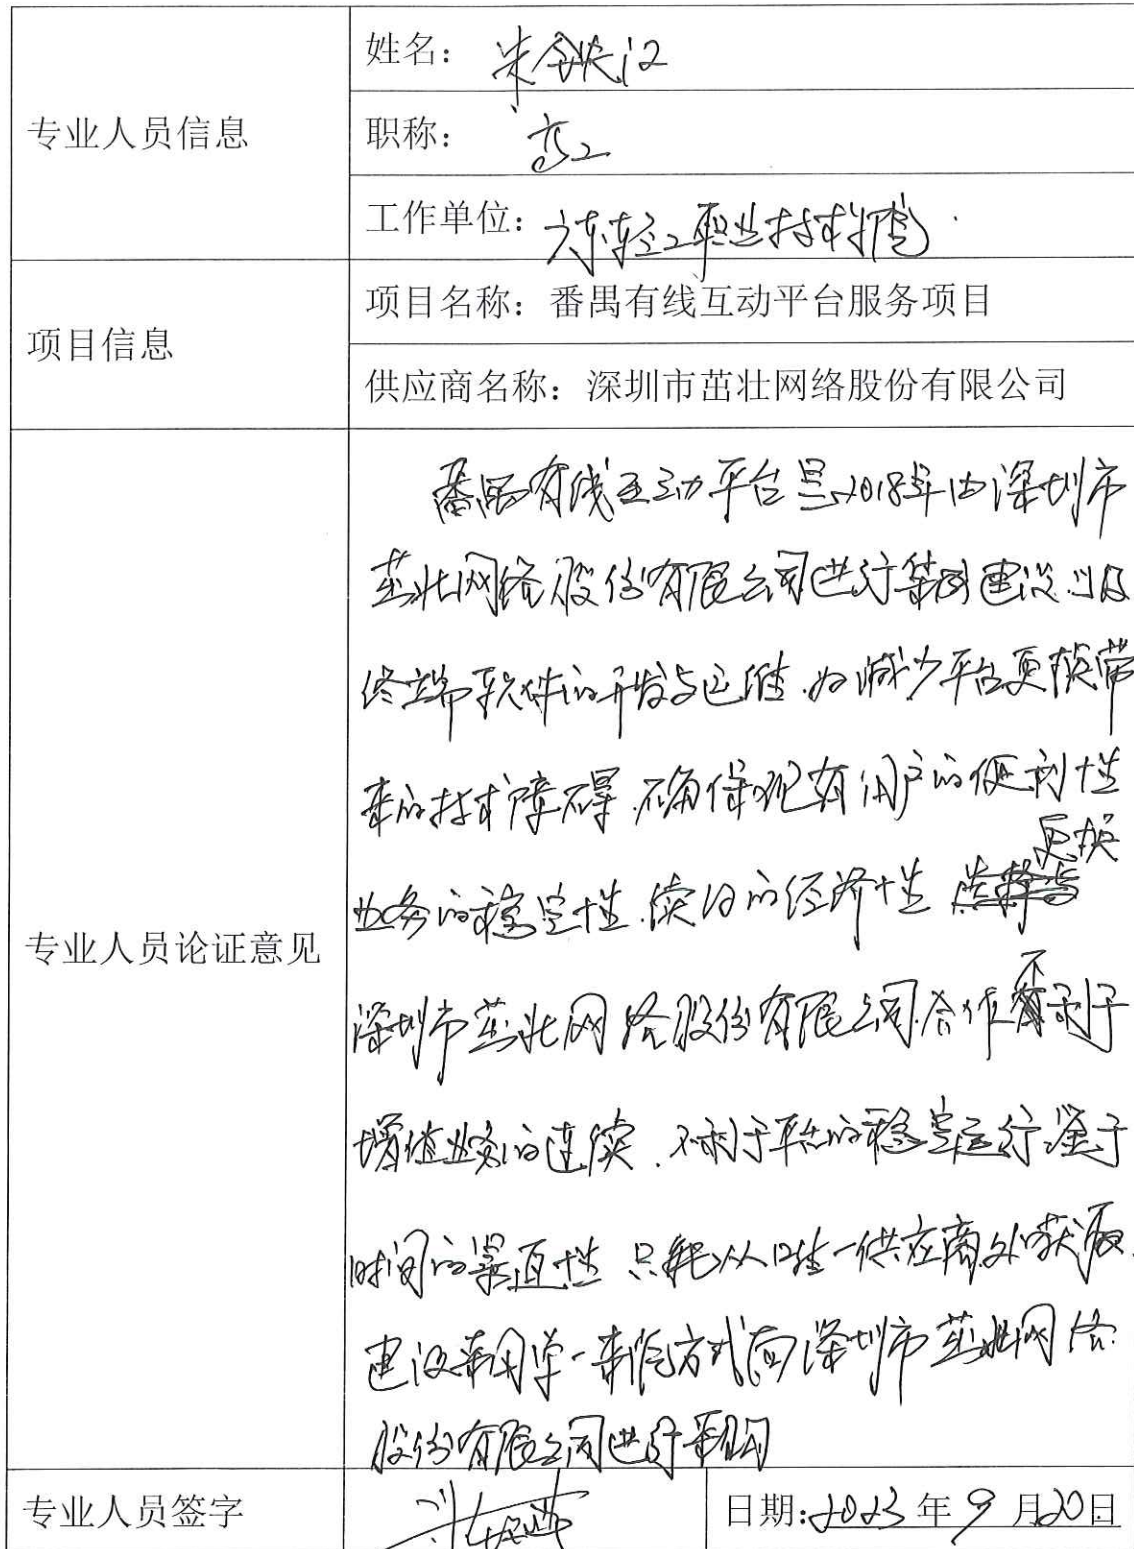 专业人员信息
姓名：
职称：高工
工作单位：广东轻工职业技术学院
项目信息
项目名称：番禺有线互动平台服务项目
供应商名称：深圳市茁壮网络股份有限公司
专业人员论证意见
番禺有线互动平台是2018年由深圳市
茁壮网络股份有限公司进行集成建设以及
终端软件的开发与运维.为减少平台更换带
来的技术障碍.确保现有用户的便利性
更换
业务的稳定性.续约的经济性
不
深圳市茁壮网络股份有限公司合作利于
增值业务的连续.不利于平台的稳定运行鉴于
时间的紧迫性 只能从唯一供应商处获取.
建议采用单一来源方式向深圳市茁壮网络
股份有限公司进行采购
专业人员签字
日期:2023年9月20日